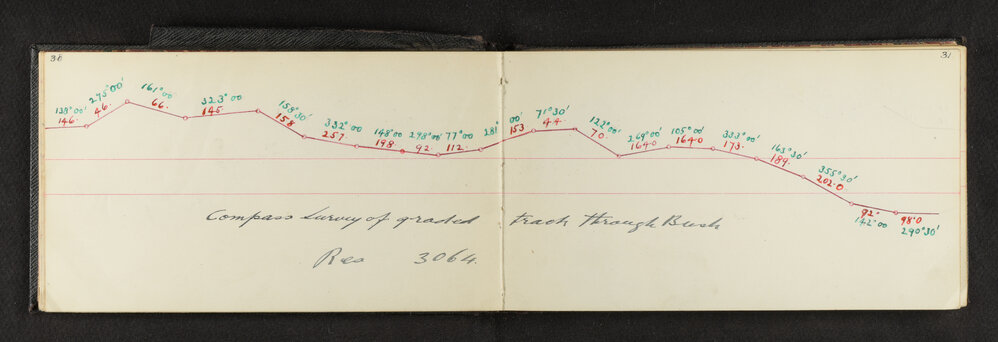 30
31
138°00' 275°00' 161°00 323°00 158°30' 332°00 148°00 298°00' 77°00 281° 00' 71°30' 122°00' 269°00' 105°00' 333°00' 163°30' 355°30'
146. 46. 66. 145 158 257. 198. 92. 112. 153 44. 70. 164.0 164.0 173. 189. 202.0
92. 98.0
142°00 290°30'
Compass Survey of graded track through Bush
Res 3064.